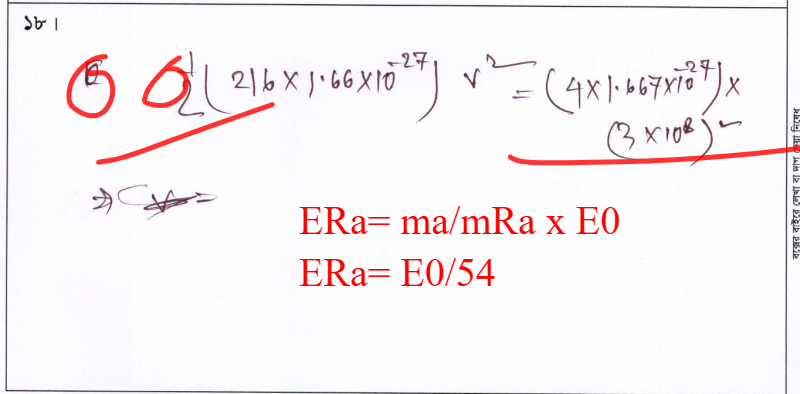 ১৮।
½(216×1.66×10⁻²⁷) v² = (4×1.667×10⁻²⁷)×
(3×10⁸)²
⇒
ERa= ma/mRa x E0
ERa= E0/54
বক্সের বাইরে লেখা বা দাগ দেয়া নিষেধ